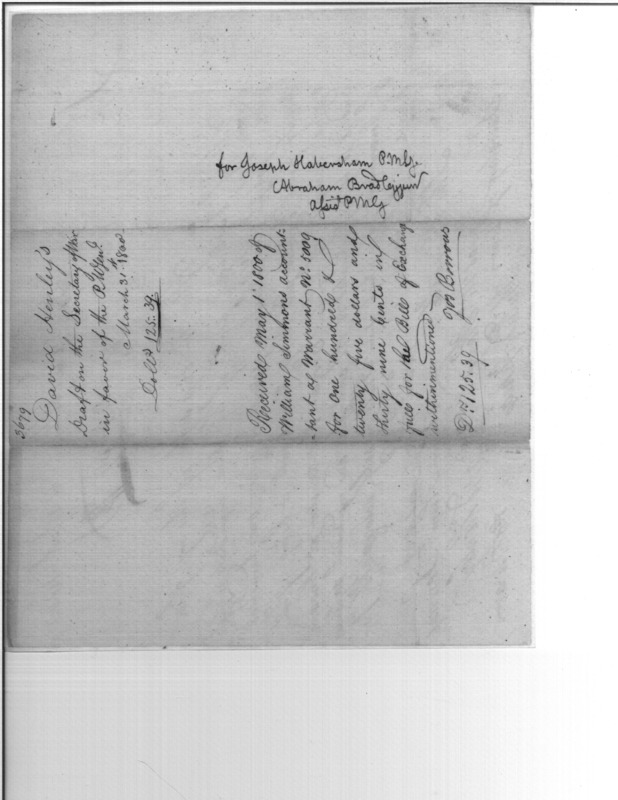 for Joseph Habersham P.M.G.
Abraham Bradley jun
Assis PMG
3679
David Henley's
Draft on the Secretary of War
in favor of the P. M Genl.
March 31 1800
Dolls 125.39
Received May 1st 1800 of
William Simmons account-
tant a Warrant No. 5009
for One hundred &
twenty five dollars and
thirty nine Cents in
full for the Bill of Exchange
withinmentioned
Drs 125.39 Jos Borrows